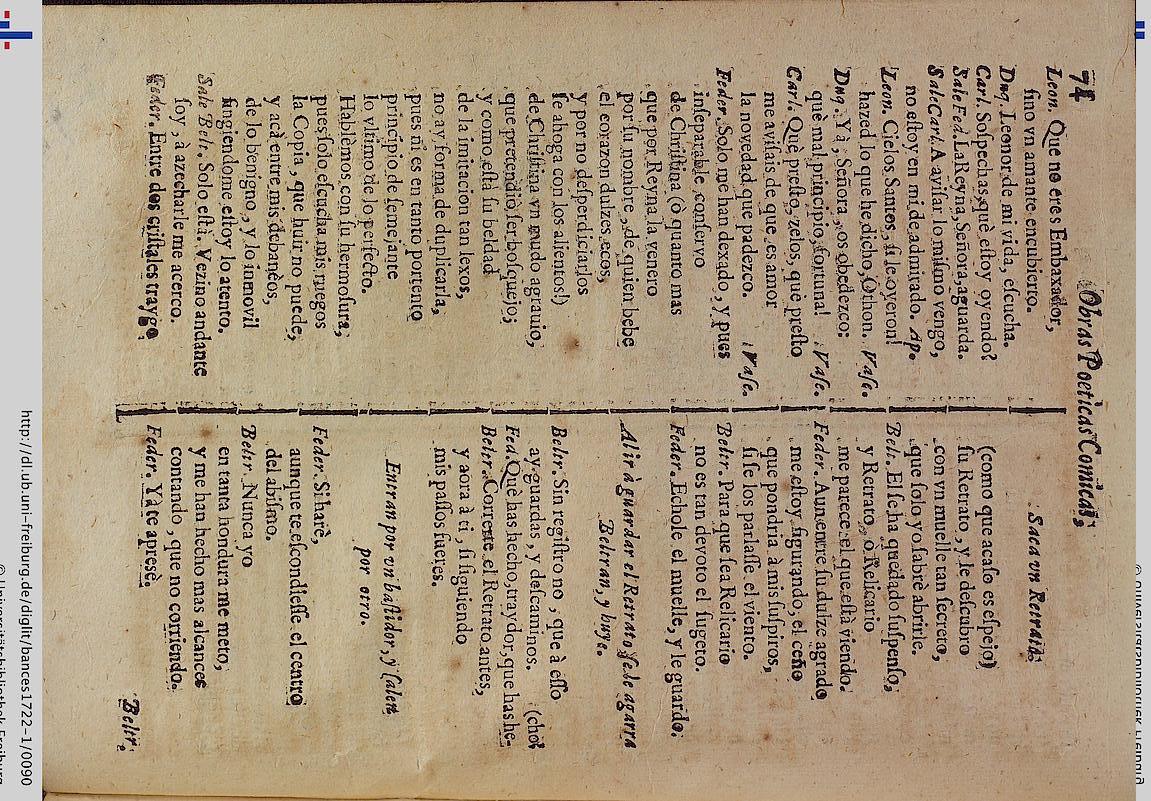 74
Obras Poeticas Comicas,
Leon. Que no eres Embaxador,
fino vn amante encubierto.
Duq. Leonor de mi vida, eſcucha.
Carl. Soſpechas, què eſtoy oyendo?
Sale Fed. La Reyna, Señora, aguarda.
Sale Carl. A aviſar lo miſmo vengo,
no eſtoy en mi de admirado. Ap.
Leon. Cielos Santos, ſi le oyeron!
hazed lo que he dicho, Othon. Vaſe.
Duq. Yà, Señora, os obedezco:
què mal principio, fortuna! Vaſe.
Carl. Què preſto, zelos, què preſto
me aviſais de que es amor
la novedad que padezco. Vaſe.
Feder. Solo me han dexado, y pues
inſeparable conſervo
de Chriſtina (ò quanto mas
que por Reyna la venero
por ſu nombre, de quien bebe
el corazon dulzes ecos,
y por no deſperdiciarlos
ſe ahoga con los alientos!)
de Chriſtina vn mudo agravio,
que pretendiò ſer boſquejo;
y como eſtà ſu beldad
de la imitacion tan lexos,
no ay forma de duplicarla,
pues ni es en tanto portento
principio de ſemejante
lo vltimo de lo perfecto.
Hablèmos con ſu hermoſura,
pues ſolo eſcucha mis ruegos
la Copia, que huir no puede,
y acà entre mis debanèos,
de lo benigno, y lo inmovil
fingiendome eſtoy lo atento.
Sale Belt. Solo eſtà. Vezino andante
ſoy, à azecharle me acerco.
Feder. Entre dos criſtales traygo
Saca vn Retrato.
(como que acaſo es eſpejo)
ſu Retrato, y le deſcubro
con vn muelle tan ſecreto,
que ſolo yo ſabrè abrirle.
Belt. Elſe ha quedado ſuſpenſo,
y Retrato, ò Relicario
me parece el que eſtà viendo.
Feder. Aun entre ſu dulze agrado
me eſtoy figurando, el ceño
que pondria à mis ſuſpiros,
ſi ſe los parlaſſe el viento.
Beltr. Para que ſea Relicario
no es tan devoto el ſugeto.
Feder. Echole el muelle, y le guardo.
Al ir à guardar el Retrato ſe le agarra
Beltran, y huye.
Beltr. Sin regiſtro no, que à eſſo
ay guardas, y deſcaminos. (cho?
Fed. Què has hecho, traydor, que has he-
Beltr. Correrte el Retrato antes,
y aora à ti, ſi ſiguiendo
mis paſſos fueres.
Entran por vn baſtidor, y ſalen
por otro.
Feder. Si harè,
aunque te eſcondieſſe el centro
del abiſmo.
Beltr. Nunca yo
en tanta hondura me meto,
y me han hecho mas alcances
contando, que no corriendo.
Feder. Yà te apresè.
Beltr.
http://dl.ub.uni-freiburg.de/diglit/bances1722-1/0090
© Universitätsbibliothek Freiburg